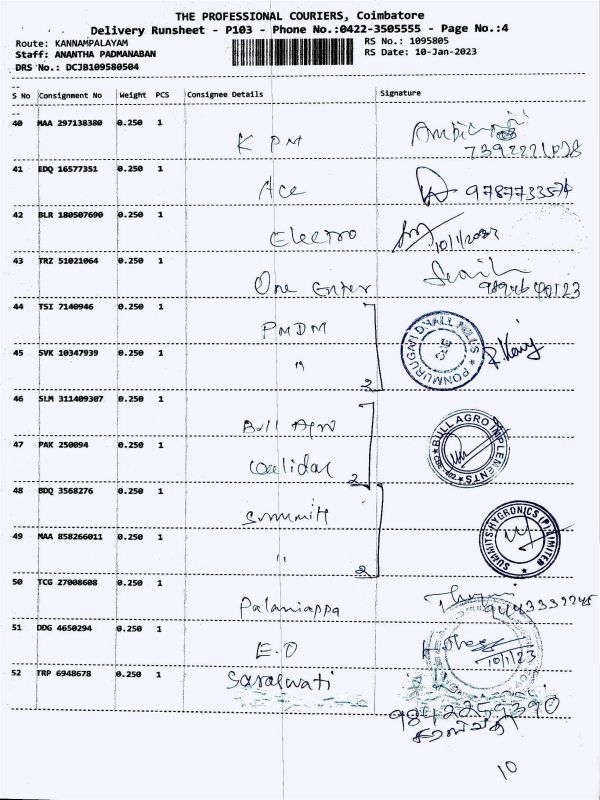 THE PROFESSIONAL COURIERS, Coimbatore
Delivery Runsheet - P103 - Phone No.:0422-3505555 - Page No.:4
Route: KANNAMPALAYAM
RS No.: 1095805
Staff: ANANTHA PADMANABAN
RS Date: 10-Jan-2023
DRS No.: DCJB109580504
S No Consignment No Weight PCS Consignee Details Signature
40 MAA 297138380 0.250 1
K PM
41 EDQ 16577351 0.250 1
Ace 9787733574
42 BLR 180507690 0.250 1
Electro 10/1/2023
43 TRZ 51021064 0.250 1
One Enter
44 TSI 7140946 0.250 1
PMDM
PONMURUGAN DHALL MILLS
45 SVK 10347939 0.250 1
"
2
46 SLM 311409307 0.250 1
Bull Agro
BULL AGRO IMPLEMENTS
47 PAK 250094 0.250 1
2
48 BDQ 3568276 0.250 1
Summit
SUMMITS HYGRONICS (P) LIMITED
49 MAA 858266011 0.250 1
"
2
50 TCG 27008608 0.250 1
Palaniappa 9443339245
51 DDG 4650294 0.250 1
E.O 10/1/23
52 TRP 6948678 0.250 1
Saraswati
9842259390
10